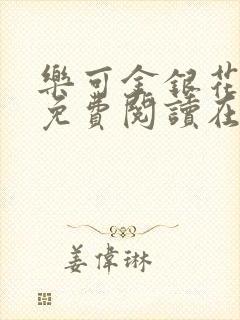 樂可金銀花
免費閱讀在
姜偉琳